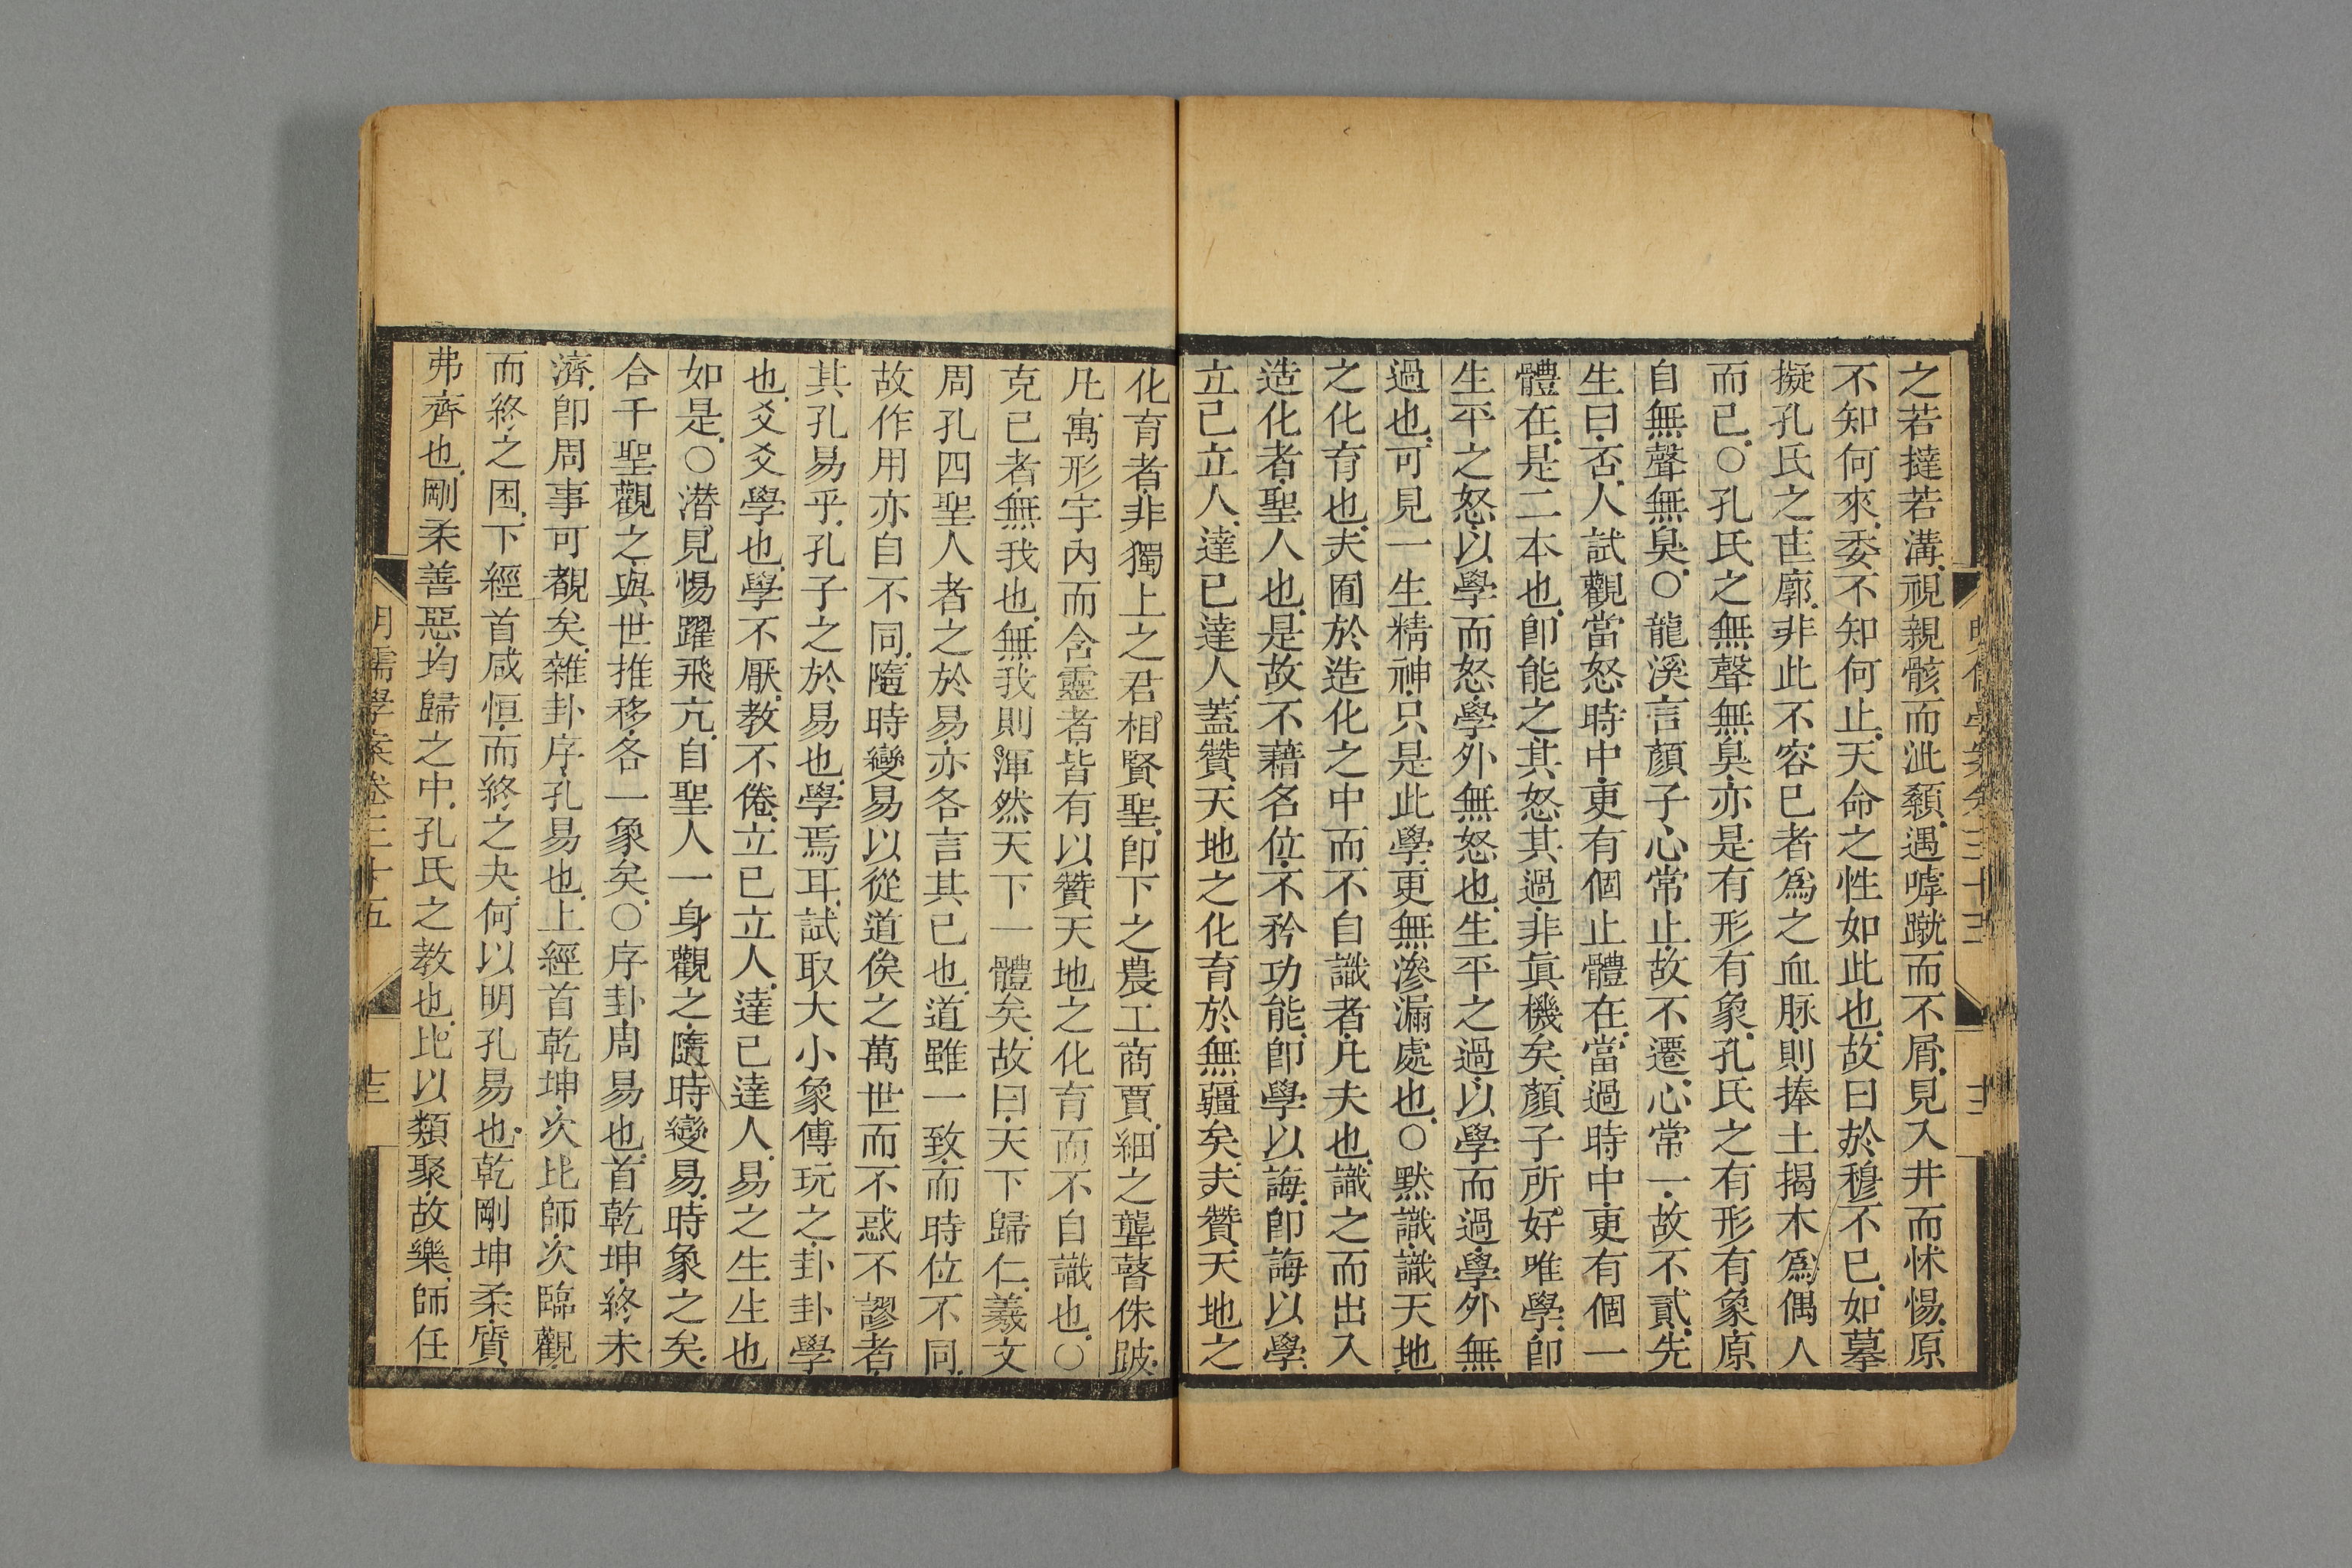 之若撻若溝視親骸而泚纇遇嘑蹴而不屑見入井而怵惕原
不知何來委不知何止天命之性如此也故曰於穆不已如摹
擬孔氏之㞷廓非此不容已者爲之血脉則捧土揭木爲偶人
而已○孔氏之無聲無臭亦是有形有象孔氏之有形有象原
自無聲無臭○龍溪言顏子心常止故不遷心常一故不貳先
生曰否人試觀當怒時中更有個止體在當過時中更有個一
體在是二本也卽能之其怒其過非眞機矣顏子所好唯學卽
生平之怒以學而怒學外無怒也生平之過以學而過學外無
過也可見一生精神只是此學更無滲漏處也○默識識天地
之化育也夫囿於造化之中而不自識者凡夫也識之而出入
造化者聖人也是故不藉名位不矜功能卽學以誨卽誨以學
立已立人達已達人蓋贊天地之化育於無疆矣夫贊天地之
化育者非獨上之君相賢聖卽下之農工商賈細之聾瞽侏跛
凡寓形宇內而含靈者皆有以贊天地之化育而不自識也○
克已者無我也無我則渾然天下一體矣故曰天下歸仁羲文
周孔四聖人者之於易亦各言其已也道雖一致而時位不同
故作用亦自不同隨時變易以從道俟之萬世而不惑不謬者
其孔易乎孔子之於易也學焉耳試取大小象傳玩之卦卦學
也爻爻學也學不厭教不倦立已立人達已達人易之生生也
如是○潛見惕躍飛亢自聖人一身觀之隨時變易時象之矣
合千聖觀之與世推移各一象矣○序卦周易也首乾坤終未
濟卽周事可覩矣雜卦序孔易也上經首乾坤次比師次臨觀
而終之困下經首咸恒而終之夬何以明孔易也乾剛坤柔質
弗齊也剛柔善惡均歸之中孔氏之教也比以類聚故樂師任
明儒學案卷三十五